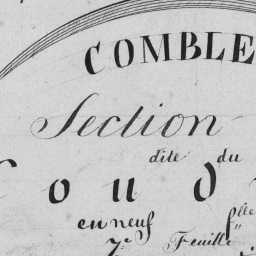 COMBLE
Section
dite du
Coud
en neuf f.lles
7e Feuille.